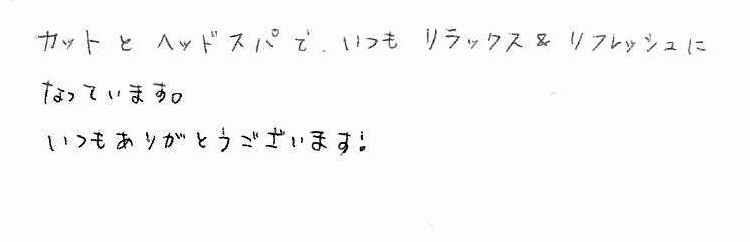 カットとヘッドスパで、いつもリラックス&リフレッシュに
なっています。
いつもありがとうございます!